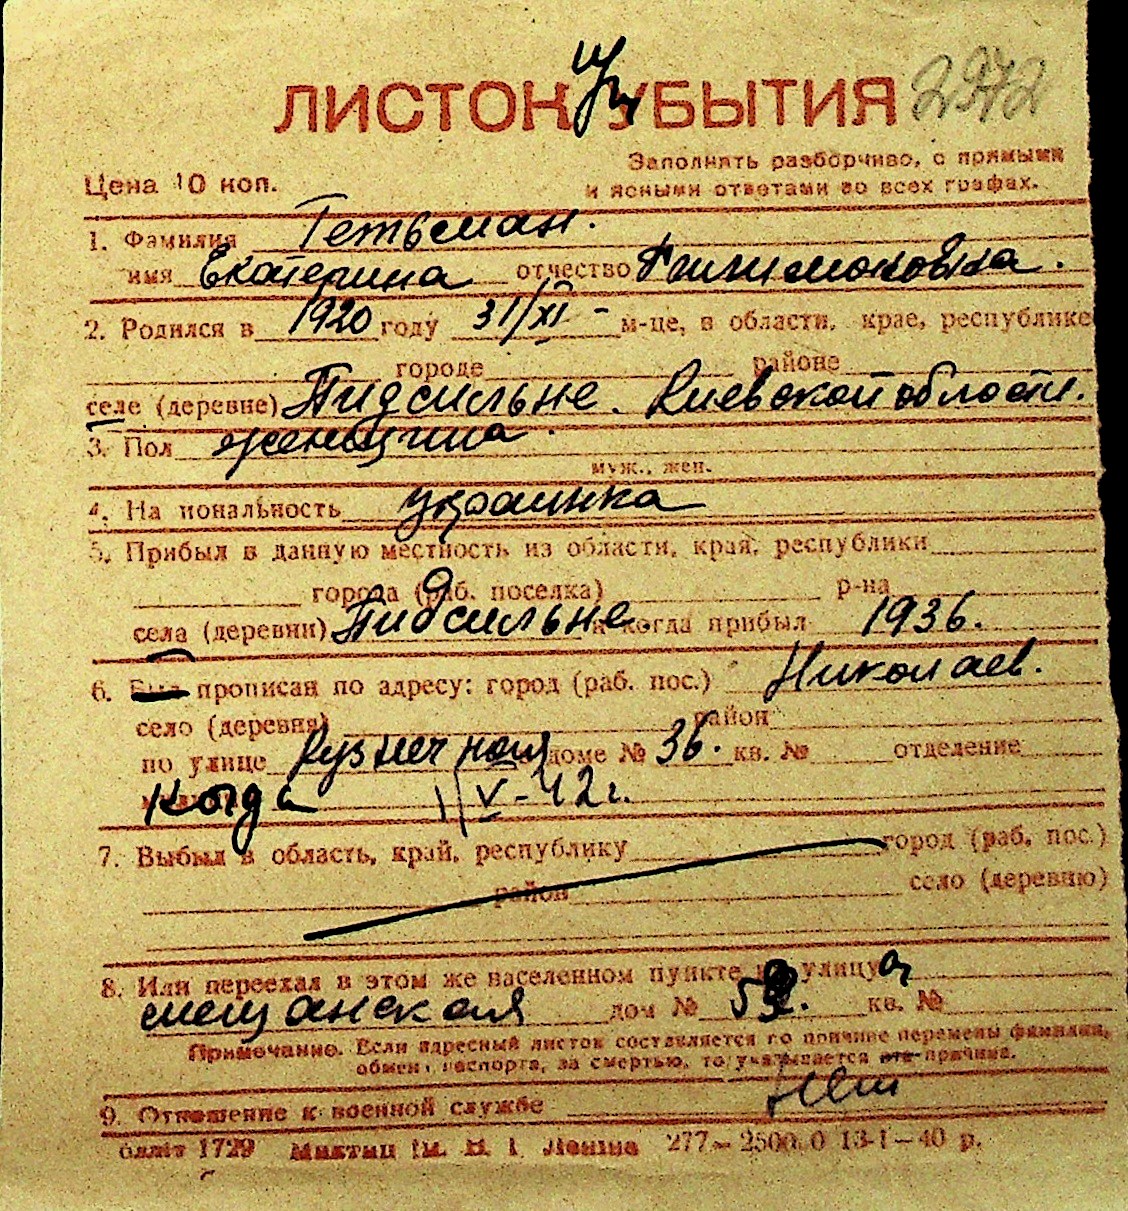 ЛИСТОК УБЫТИЯ 2972
Заполнять разборчиво, с прямыми
Цена 10 коп. и ясными ответами во всех графах.
1. Фамилия Гетьман.
имя Екатерина отчество
2. Родился в 1920 году 31/XI - м-це, в области, крае, республике
городе районе
селе (деревне) Пидсильне. Киевской области.
3. Пол женщина.
муж., жен.
4. На иональность украинка
5. Прибыл в данную местность из области, края, республики
города (раб. поселка) р-на
села (деревни) Пидсильне. и когда прибыл 1936.
6. Был прописан по адресу: город (раб. пос.) Николаев.
село (деревня) район
по улице Кузнечная доме № 36. кв. № отделение
Когда 1/V-42г.
7. Выбыл в область, край, республику город (раб. пос.)
район село (деревню)
8. Или переехал в этом же населенном пункте улицу
мещанская дом № кв. №
Примечание. Если адресный листок составляется по причине перемены фамилии,
обмен паспорта, за смертью, то указывается эта причина.
9. Отношение к военной службе Нет
бліт 1729 Миктиц Ім. В. І. Леніна 277—2500.0 13-I—40 р.